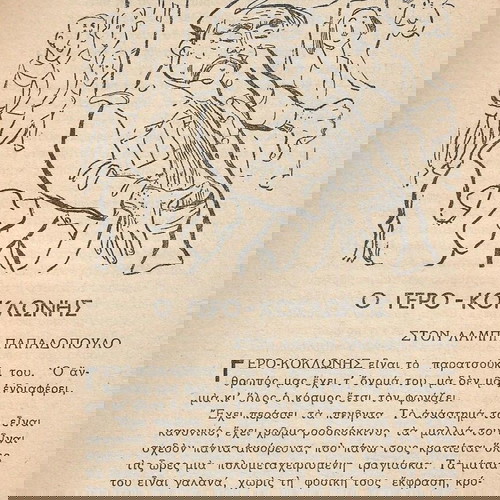 Ο ΓΕΡΟ - ΚΟΚΛΩΝΗΣ
ΣΤΟΝ ΛΑΜΠΗ ΠΑΠΑΔΟΠΟΥΛΟ
ΓΕΡΟ-ΚΟΚΛΩΝΗΣ εἶναι τὸ παρατσούκλι του. Ὁ ἄν-
θρωπός μας ἔχει τ' ὄνομά του, μὰ δὲν μᾶς
ἐνδιαφέρει,
μιὰ κι' ὅλος ὁ κόσμος ἔτσι τὸν φωνάζει.
Ἔχει περάσει τὰ πενῆντα. Τὸ ἀνάστημά του εἶναι
κανονικό, ἔχει χρῶμα ροδοκόκκινο, τὰ μαλλιά του εἶναι
σχεδὸν πάντα ἀκούρευτα, ποὺ πάνω τους κρατιέται
τὶς ὧρες μιὰ πολυμεταχειρισμένη τραγιάσκα. Τὰ μάτια
του εἶναι γαλανά, χωρὶς τὴ φυσική τους ἔκφραση,